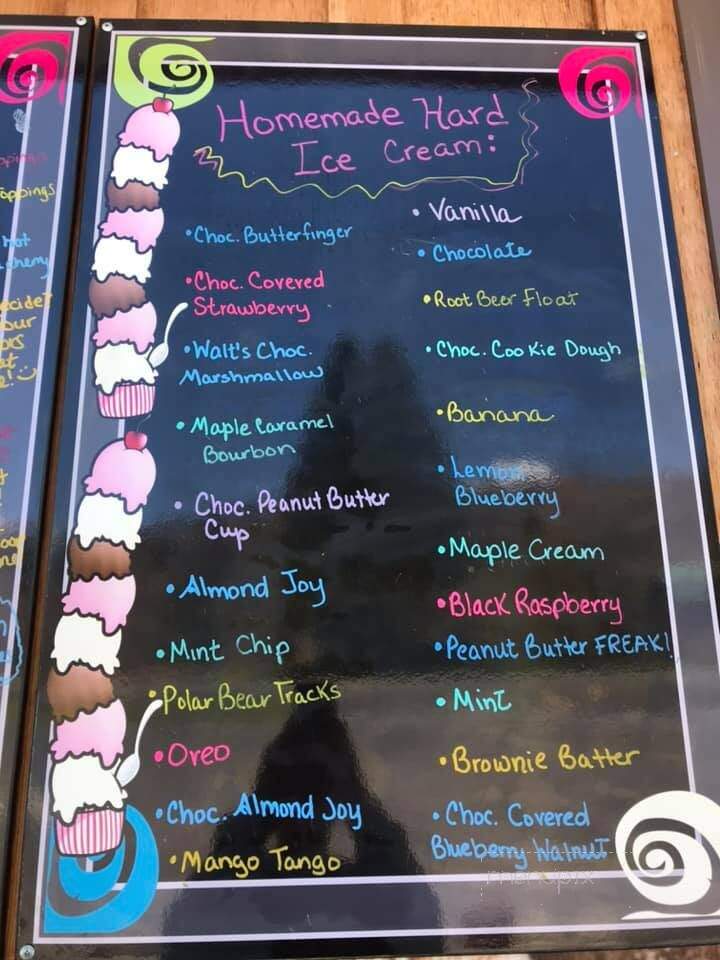 Homemade Hard
Ice Cream:
• Choc. Butterfinger
• Choc. Covered
Strawberry
• Walt's Choc.
Marshmallow
• Maple Caramel
Bourbon
• Choc. Peanut Butter
Cup
• Almond Joy
• Mint Chip
• Polar Bear Tracks
• Oreo
• Choc. Almond Joy
• Mango Tango
• Vanilla
• Chocolate
• Root Beer Float
• Choc. Cookie Dough
• Banana
• Lemon
Blueberry
• Maple Cream
• Black Raspberry
• Peanut Butter FREAK!
• Mint
• Brownie Batter
• Choc. Covered
Blueberry Walnut
menupix